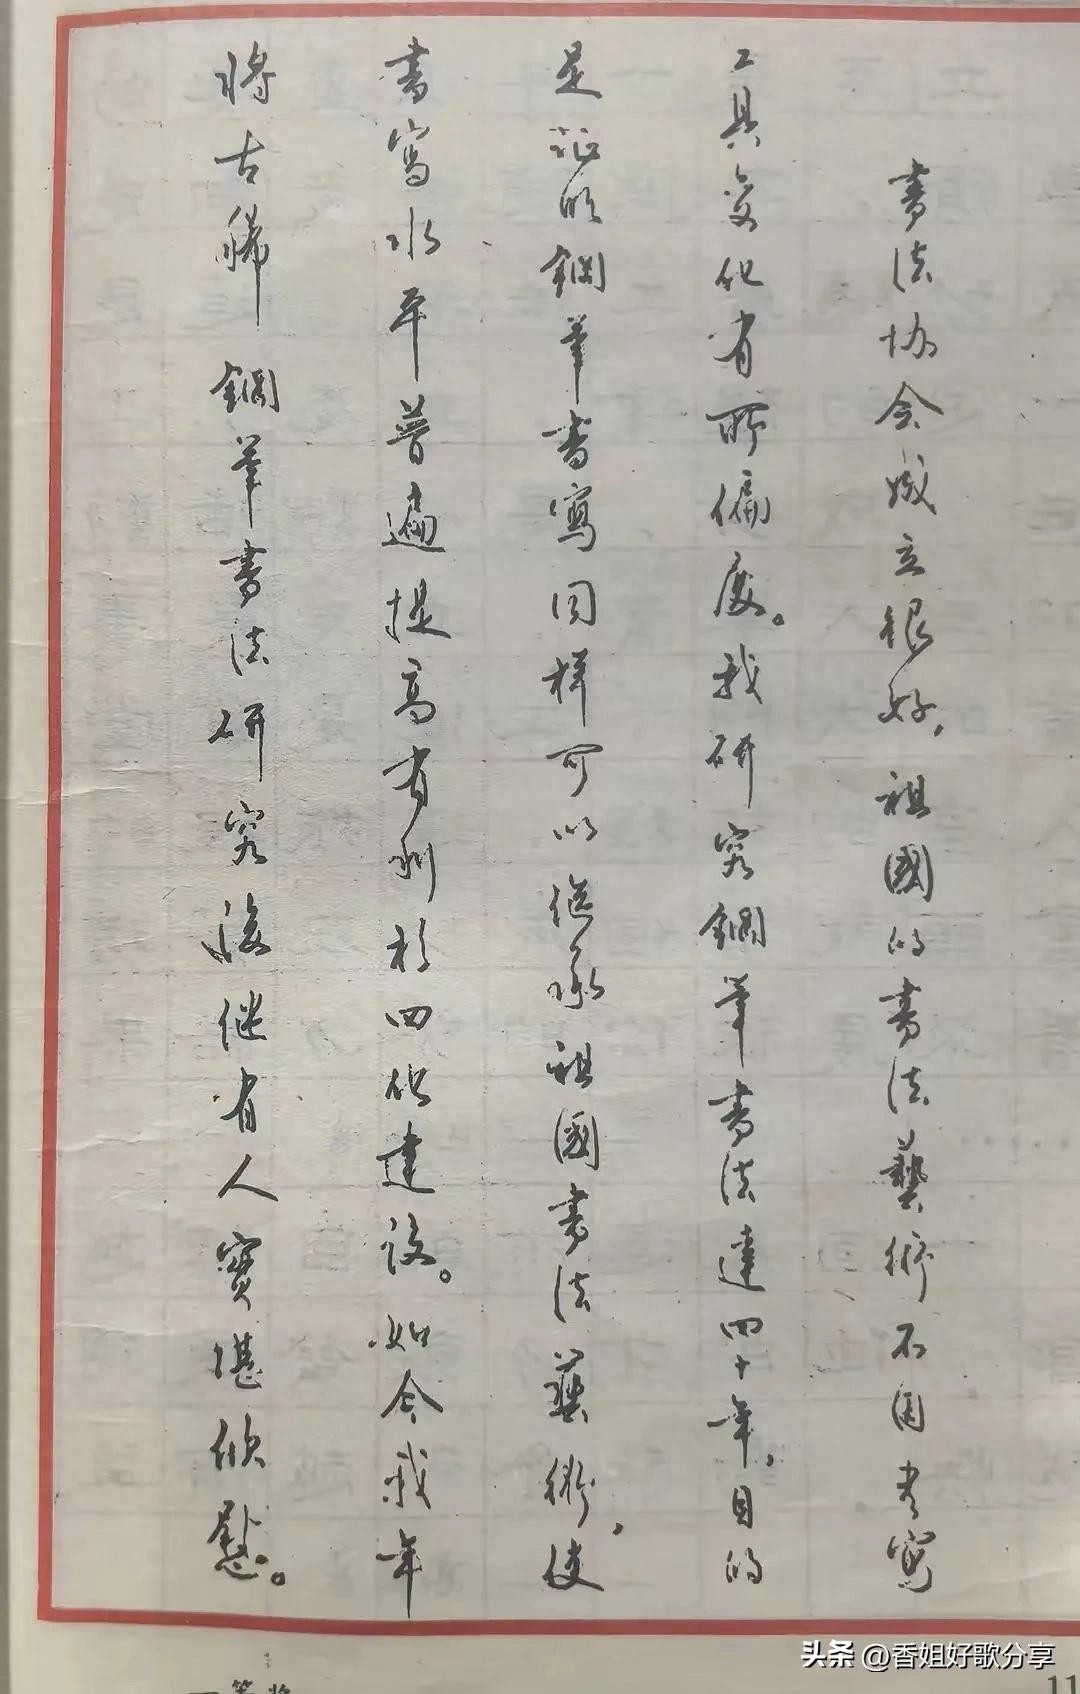 書法协会成立很好，祖國的書法藝術不因书寫
工具变化有所偏废。我研究鋼筆書法達四十年，目的
是证明鋼筆書寫同样可以继承祖國書法藝術，使
書寫水平普遍提高有利於四化建设。如今我年
将古稀鋼筆書法研究後继有人實堪欣慰。
一等奖
11
头条 @香姐好歌分享